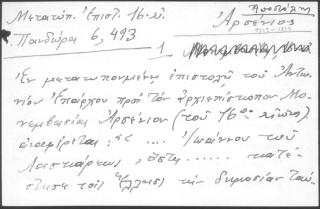 Μετατυπ. Ἐπιστ. 16. αἰ. Ἀποστόλης
Πανδώρα 6, 493 Ἀρσένιος
1
Ἐν μετατυπουμένῃ ἐπιστολῇ τοῦ Ἀντω-
νίου Ἐπάρχου πρὸ τὸν ἀρχιεπίσκοπον Μο-
νεμβασίας Ἀρσένιον (τοῦ 16ου αἰῶνος)
ἀναφέρεται: "" .... Ἰωάννου τοῦ
Λασκάρεως, ὅστις ...... κατέ-
στησε τοῖς Ἕλλησι τὴν δημοσίαν ταύ-